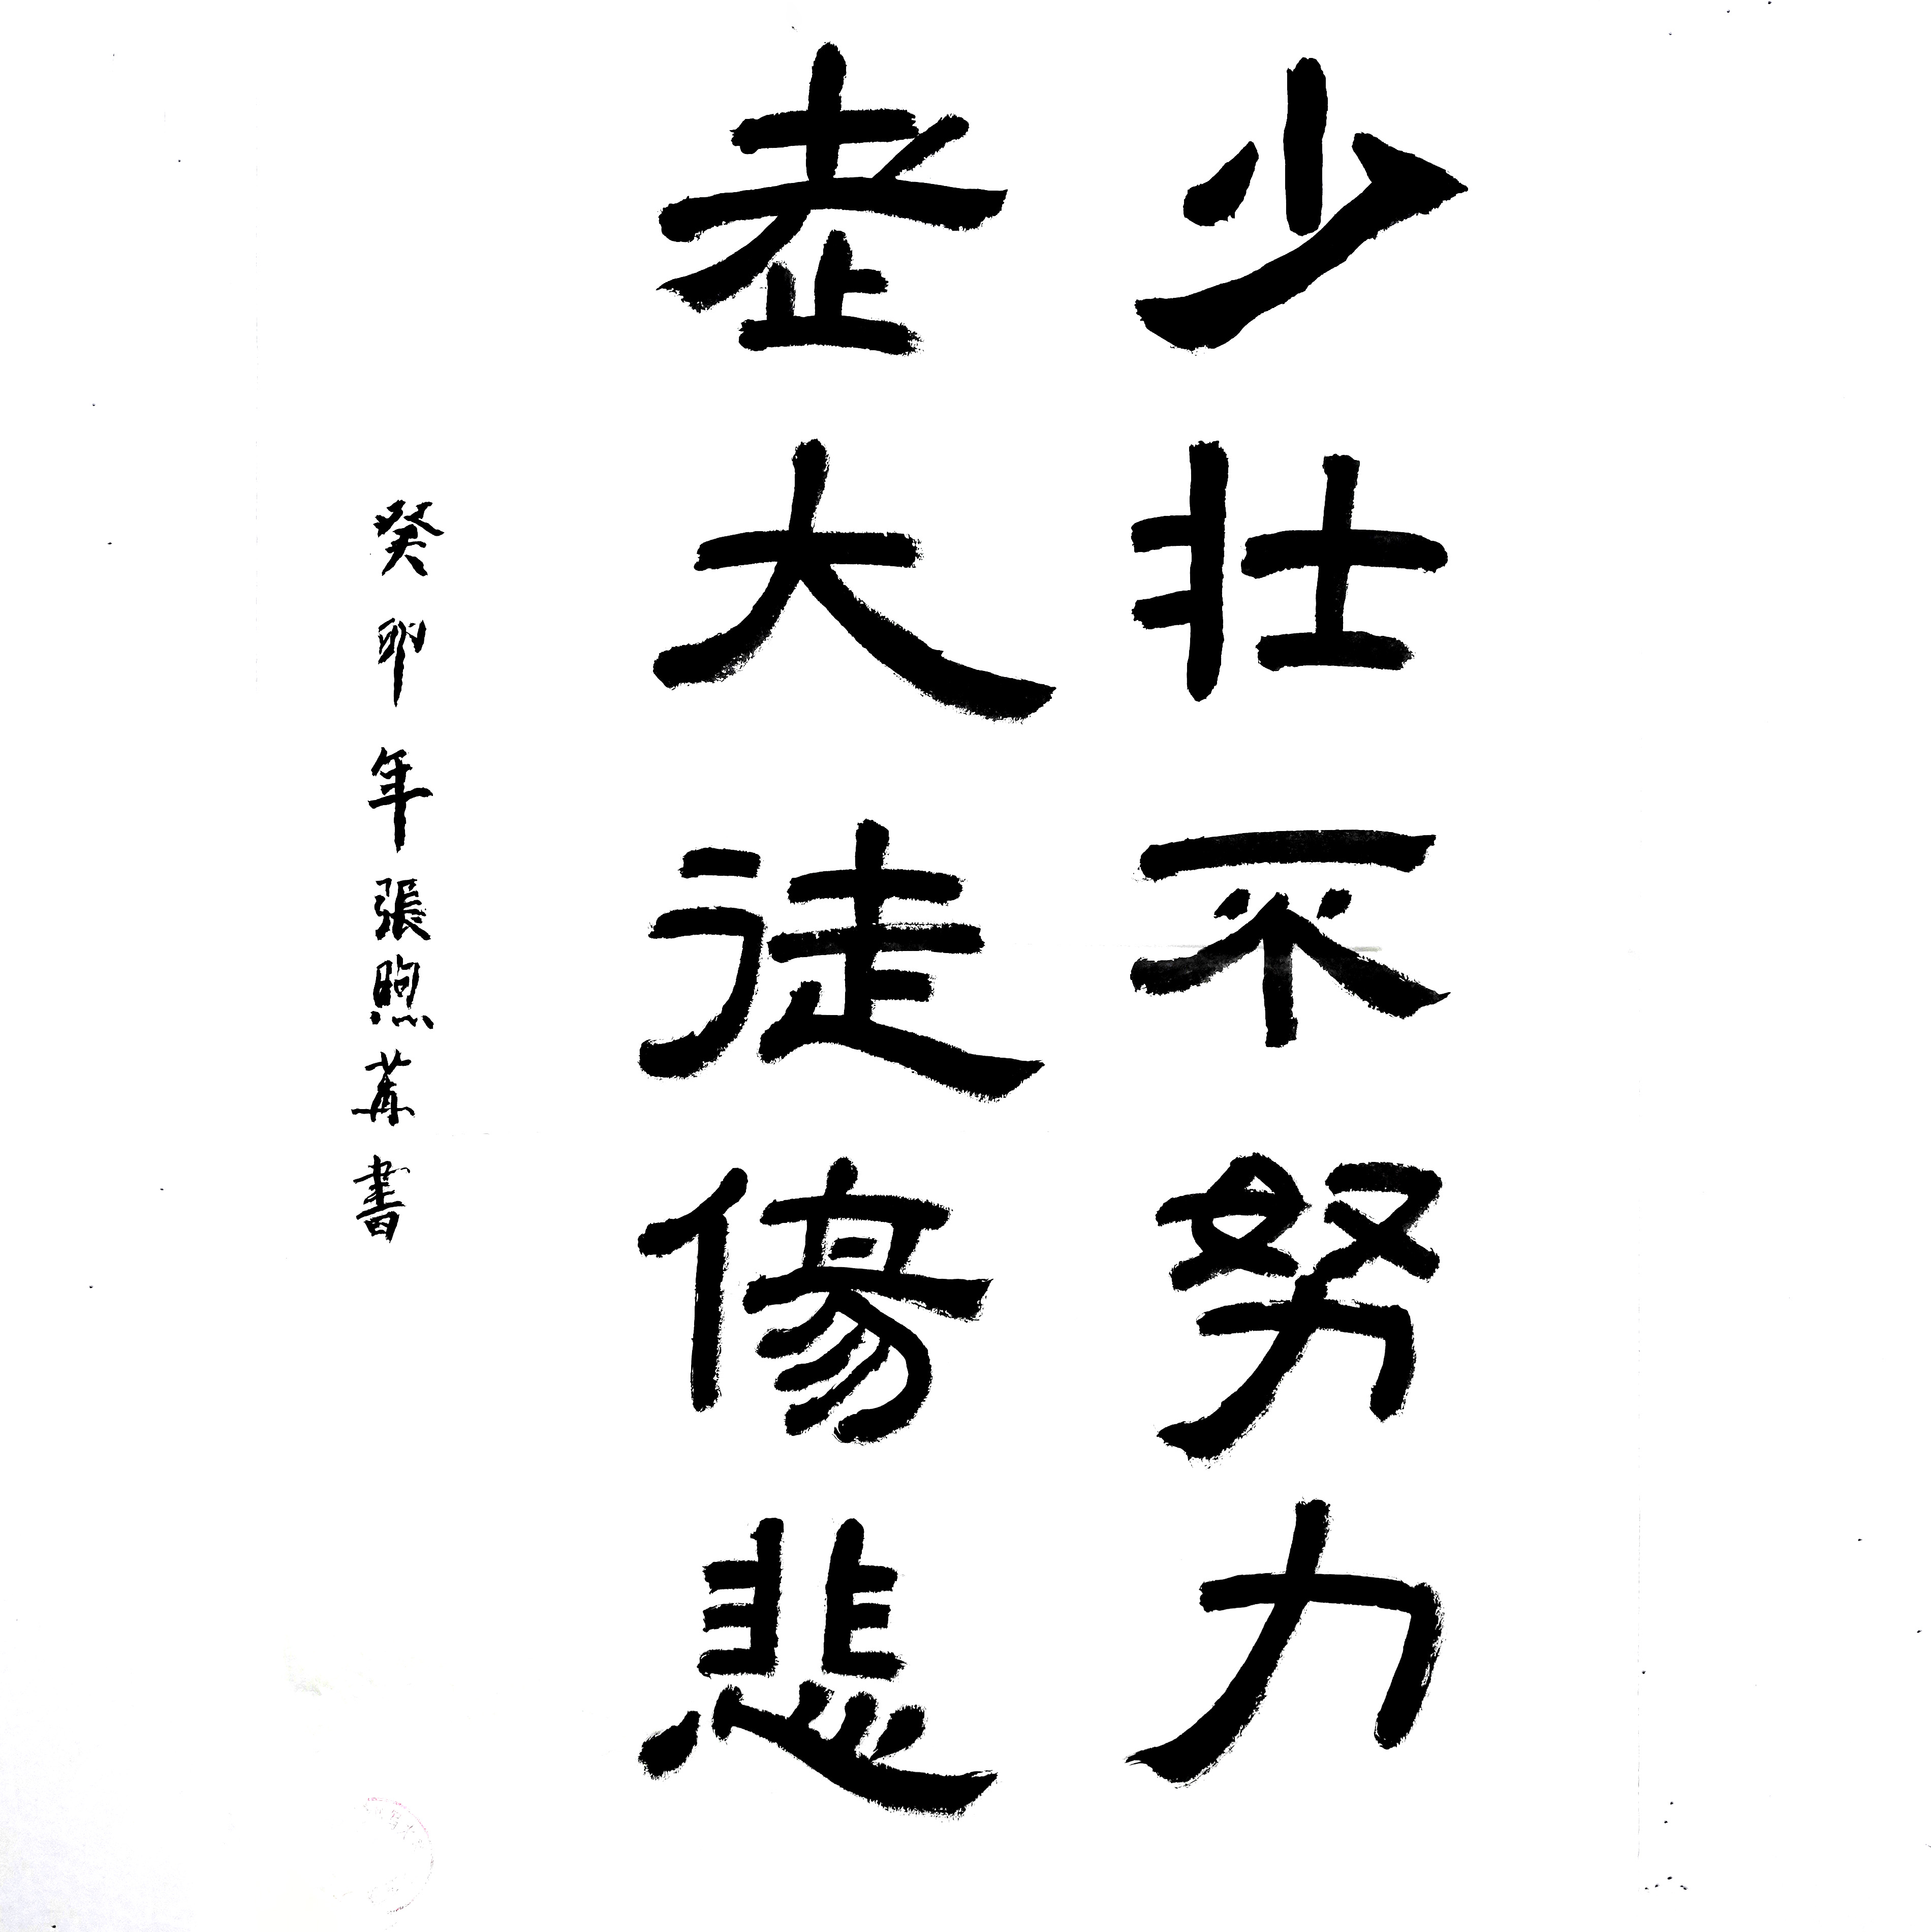 少壯不努力
老大徒傷悲
癸卯年張煦苒書